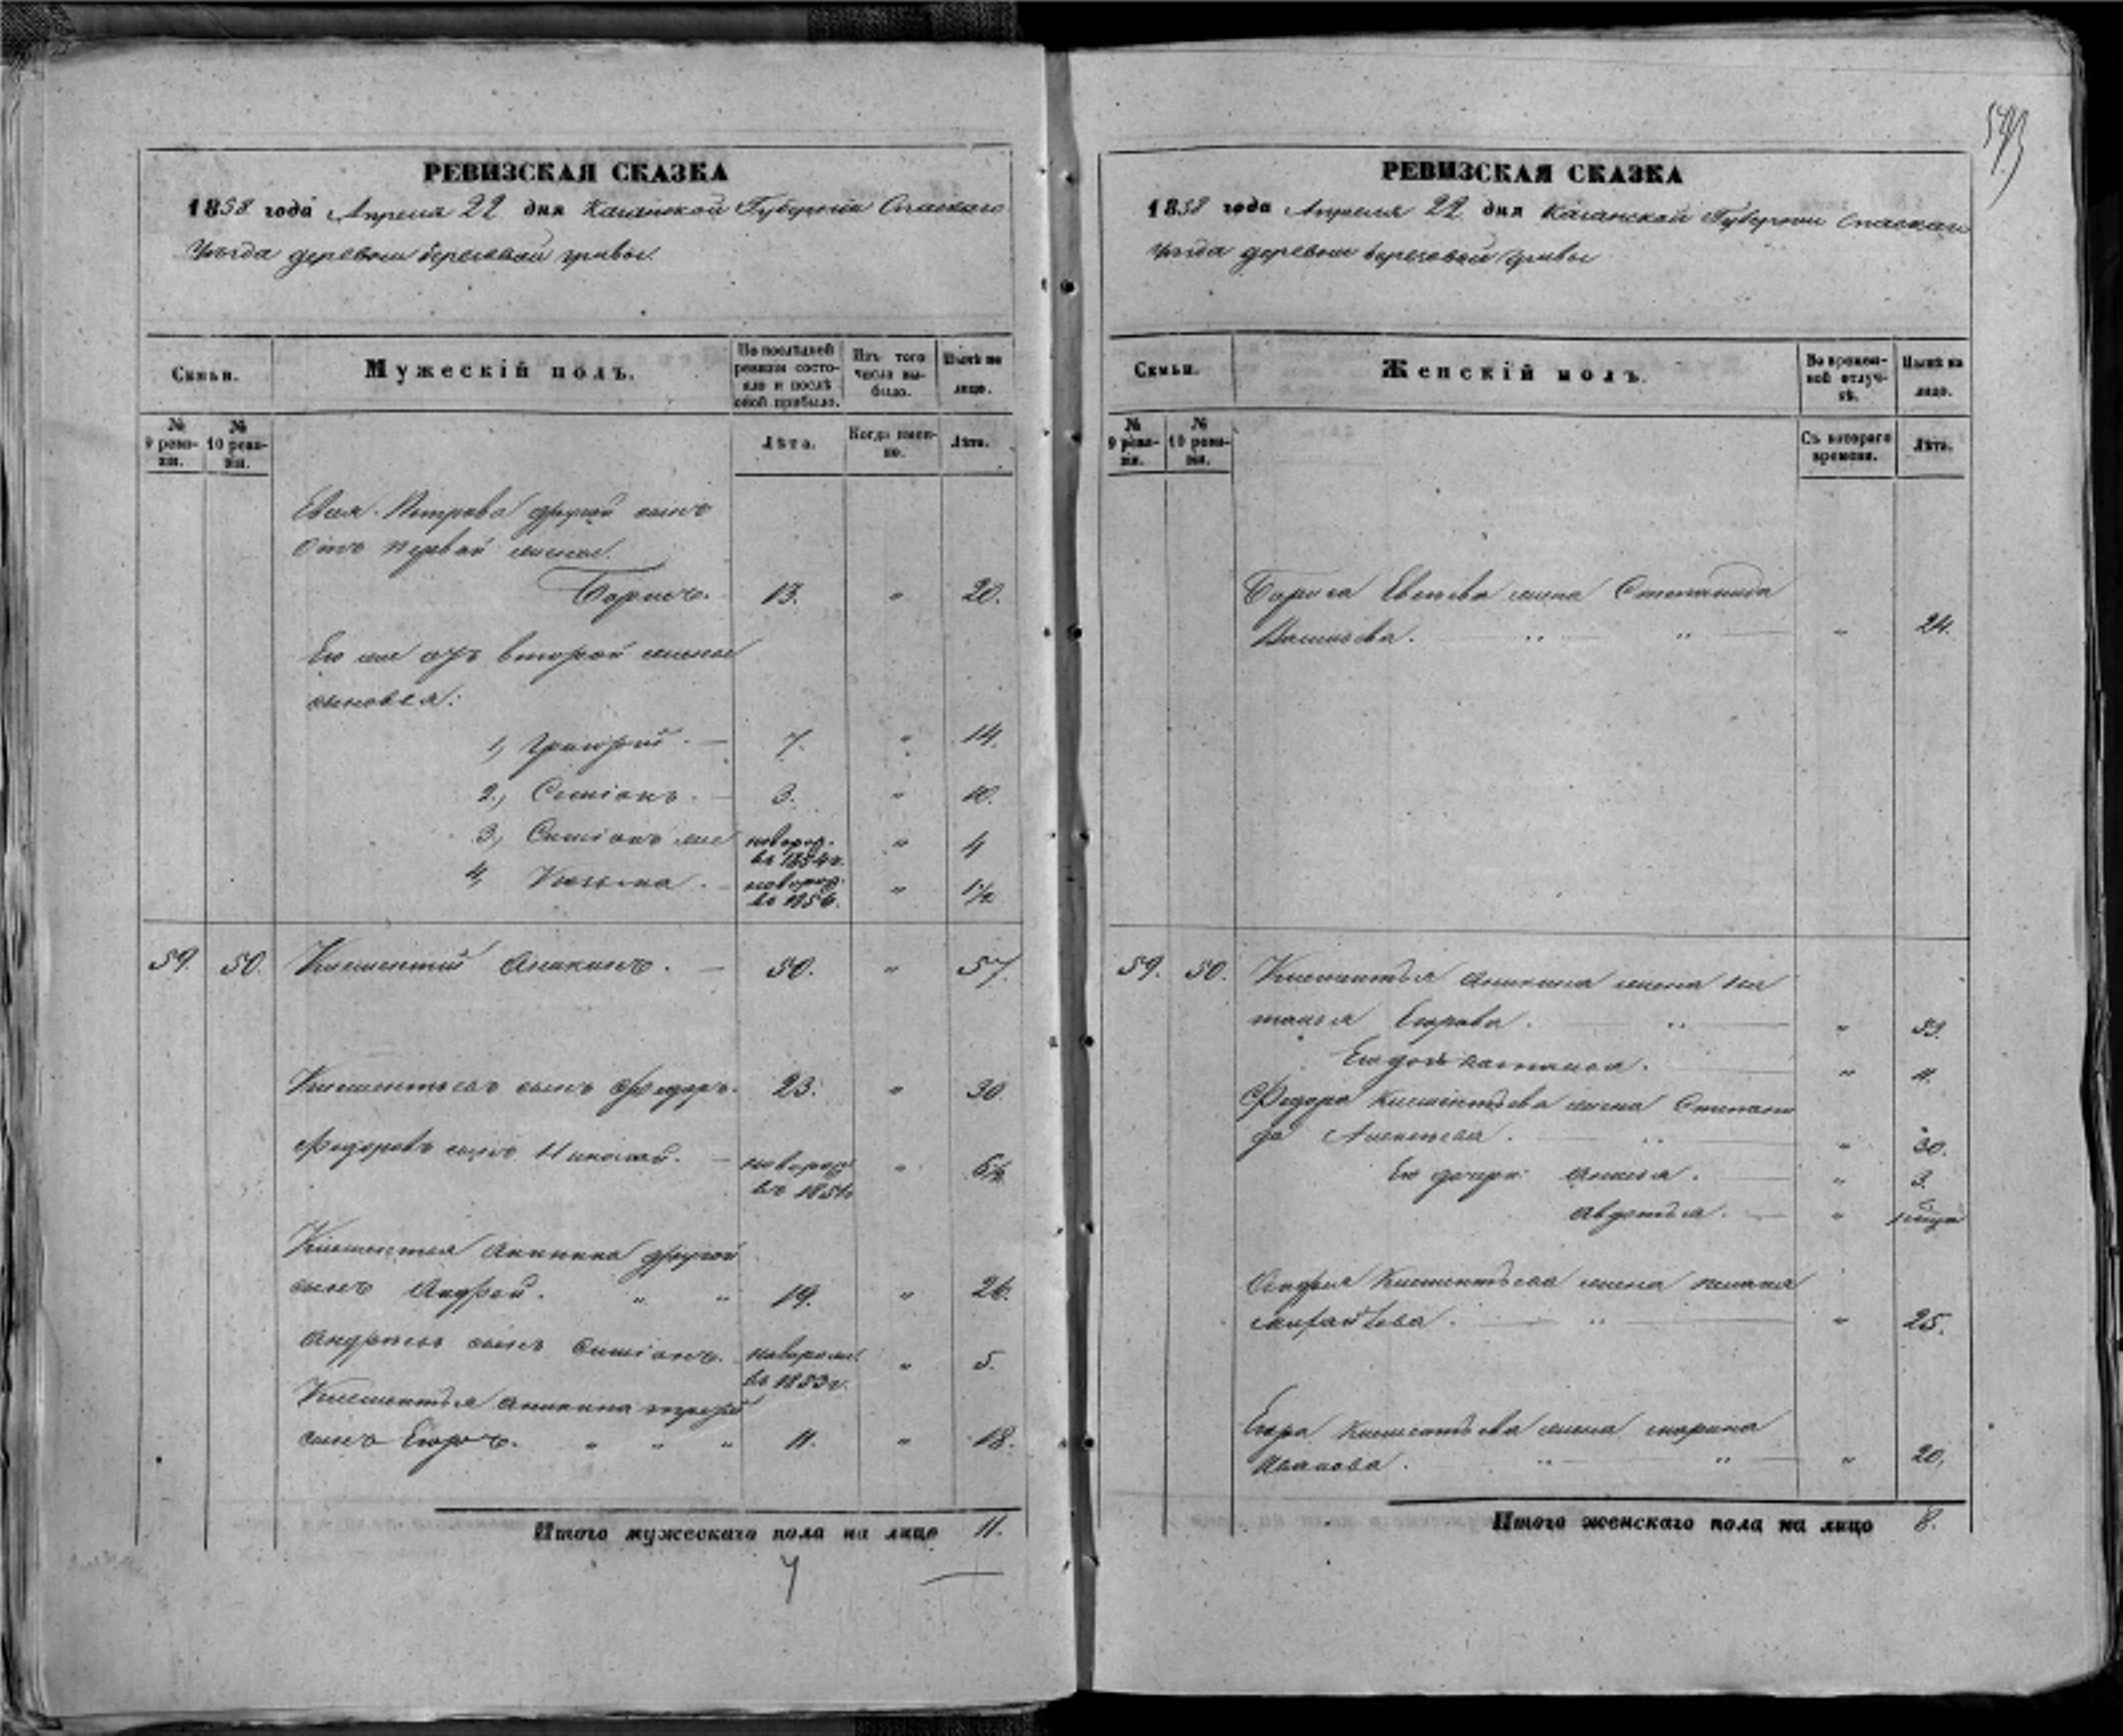 РЕВИЗСКАЯ СКАЗКА
1858 года Апреля 22 дня Казанской Губернии Спаскаго
Уѣзда деревни березовой гривы.
Семьи.
Мужескій полъ.
По послѣдней ревизіи состояло и послѣ оной прибыло.
Изъ того числа выбыло.
Нынѣ на лицо.
№ 9 ревизіи.
№ 10 ревизіи.
Лѣта.
Когда именно.
Лѣта.
Петрова другой сынъ
отъ первой жены
Борисъ. 13. " 20.
Его же отъ второй жены
сыновья:
1, Григорій. 7. " 14.
2, Симіонъ. 3. " 10.
3, Симіонъ же новорож. въ 1854 г. " 4
4, Козьма. новорож. въ 1856. " 1½
59. 50. Климентий Аникинъ. 50. " 57.
Климентьевъ сынъ Федоръ. 23. " 30
Федоровъ сынъ Николай. новорож въ 1851 " 6½
Климентья Аникина другой
сынъ Андрей. " " 19. " 26.
Андреевъ сынъ Симіонъ. новорож. въ 1853 г. " 5.
Климентья Аникина третій
сынъ Егоръ. " " " 11. " 18.
Итого мужескаго пола на лицо 11.
РЕВИЗСКАЯ СКАЗКА
1858 года Апреля 22 дня Казанской Губернии Спаскаго
Уѣзда деревни березовой гривы
Семьи.
Женскій полъ.
Во временной отлучкѣ.
Нынѣ на лицо.
№ 9 ревизіи.
№ 10 ревизіи.
Съ котораго времени.
Лѣта.
Бориса жена Степанида
" 24.
59. 50. Климентья Аникина жена На
талья Егорова. " 53.
Его дочь Наталья. " 11.
Федора Климентьева жена Степани
да " 30.
Его дочери Анисья. " 3.
Авдотья. "
Андрея Климентьева жена
" 25.
Егора Климентьева жена Марина
Иванова. " 20.
Итого женскаго пола на лицо 8.